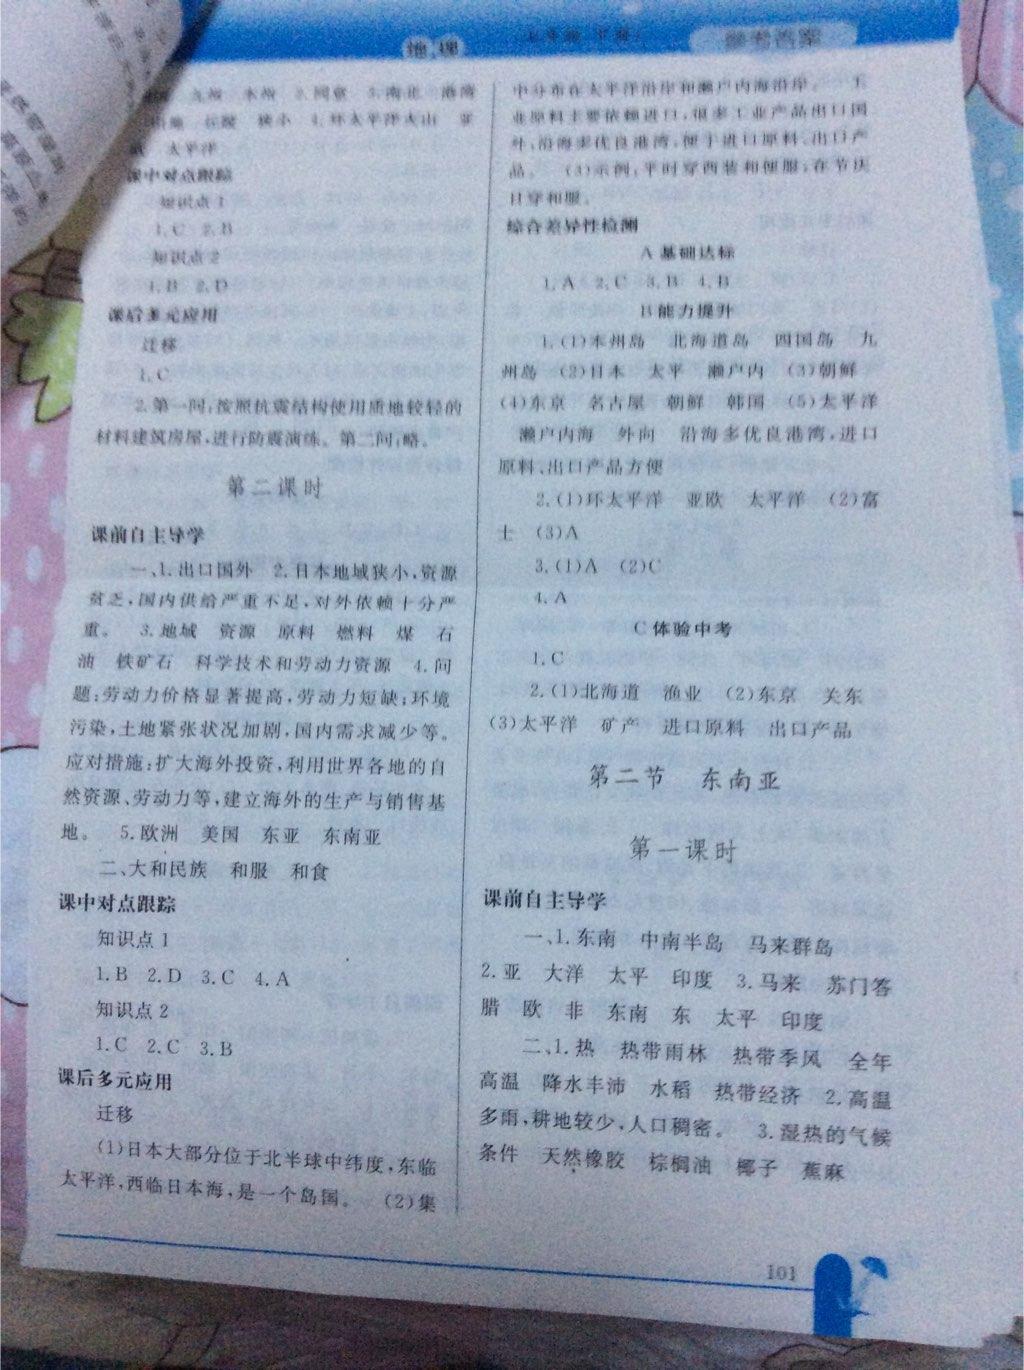 地理
七年级 下册
参考答案
九州 本州 2.同意 3.南北 港湾
石陵 狭小 4.环太平洋火山
太平洋
课中对点跟踪
知识点1
1.C 2.B
知识点2
1.B 2.D
课后多元应用
迁移
1.C
2.第一问,按照抗震结构使用质地较轻的
材料建筑房屋,进行防震演练。第二问:略。
第二课时
课前自主导学
一、1.出口国外 2.日本地域狭小,资源
贫乏,国内供给严重不足,对外依赖十分严
重。 3.地域 资源 原料 燃料 煤 石
油 铁矿石 科学技术和劳动力资源 4.问
题:劳动力价格显著提高,劳动力短缺;环境
污染,土地紧张状况加剧,国内需求减少等。
应对措施:扩大海外投资,利用世界各地的自
然资源、劳动力等,建立海外的生产与销售基
地。 5.欧洲 美国 东亚 东南亚
二、大和民族 和服 和食
课中对点跟踪
知识点1
1.B 2.D 3.C 4.A
知识点2
1.C 2.C 3.B
课后多元应用
迁移
(1)日本大部分位于北半球中纬度,东临
太平洋,西临日本海,是一个岛国。 (2)集
中分布在太平洋沿岸和濑户内海沿岸。 工
业原料主要依赖进口,很多工业产品出口国
外,沿海多优良港湾,便于进口原料、出口产
品。 (3)示例,平时穿西装和便服;在节庆
日穿和服。
综合差异性检测
A基础达标
1.A 2.C 3.B 4.B
B能力提升
1.(1)本州岛 北海道岛 四国岛 九
州岛 (2)日本 太平 濑户内 (3)朝鲜
(4)东京 名古屋 朝鲜 韩国 (5)太平洋
濑户内海 外向 沿海多优良港湾,进口
原料、出口产品方便
2.(1)环太平洋 亚欧 太平洋 (2)富
士 (3)A
3.(1)A (2)C
4.A
C体验中考
1.C
2.(1)北海道 渔业 (2)东京 关东
(3)太平洋 矿产 进口原料 出口产品
第二节 东南亚
第一课时
课前自主导学
一、1.东南 中南半岛 马来群岛
2.亚 大洋 太平 印度 3.马来 苏门答
腊 欧 非 东南 东 太平 印度
二、1.热 热带雨林 热带季风 全年
高温 降水丰沛 水稻 热带经济 2.高温
多雨,耕地较少,人口稠密。 3.湿热的气候
条件 天然橡胶 棕榈油 椰子 蕉麻
101